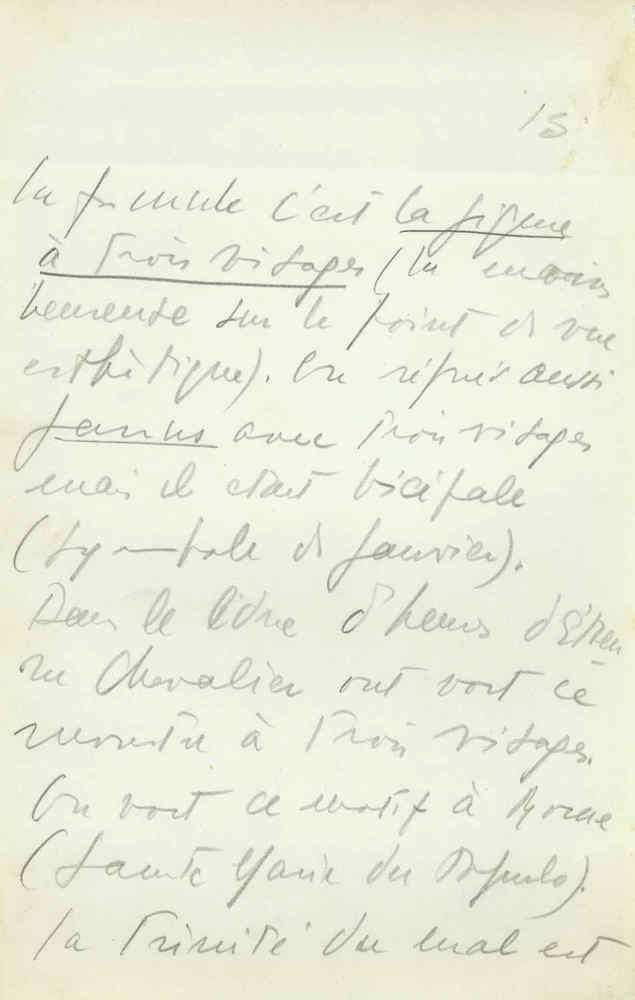 15
La formule c'est la figure
à trois visages (la moins
heureuse sur le point de vue
esthétique). On  aussi
Janus avec trois visages
mais il était bicéfale
(symbole de Janvier).
Dans le livre d'heures d'Etien
ne Chevalier ont voit ce
monstre à trois visages.
On voit ce motif à Rome
(Sainte Marie du Populo).
La Trinité du mal est